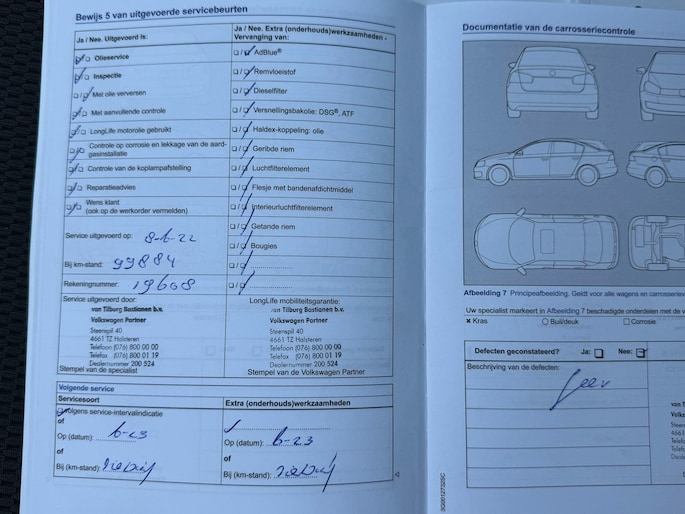 Bewijs 5 van uitgevoerde servicebeurten
Ja / Nee. Uitgevoerd is:
Olieservice
Inspectie
Met olie verversen
Met aanvullende controle
LongLife motorolie gebruikt
Controle op corrosie en lekkage van de aard-
gasinstallatie
Controle van de koplampafstelling
Reparatieadvies
Wens klant
(ook op de werkorder vermelden)
Service uitgevoerd op: 8-6-22
Bij km-stand: 99884
Rekeningnummer: 19608
Ja / Nee. Extra (onderhouds)werkzaamheden -
Vervanging van:
AdBlue®
Remvloeistof
Dieselfilter
Versnellingsbakolie: DSG®, ATF
Haldex-koppeling: olie
Geribde riem
Luchtfilterelement
Flesje met bandenafdichtmiddel
Interieurluchtfilterelement
Getande riem
Bougies
Service uitgevoerd door:
van Tilburg Bastianen b.v.
Volkswagen Partner
Steenspil 40
4661 TZ Halsteren
Telefoon (076) 800 00 00
Telefax (076) 800 01 19
Dealernummer 200 524
Stempel van de specialist
LongLife mobiliteitsgarantie:
van Tilburg Bastianen b.v.
Volkswagen Partner
Steenspil 40
4661 TZ Halsteren
Telefoon (076) 800 00 00
Telefax (076) 800 01 19
Dealernummer 200 524
Stempel van de Volkswagen Partner
Volgende service
Servicesoort
volgens service-intervalindicatie
of
Op (datum): 6-23
of
Bij (km-stand):
Extra (onderhouds)werkzaamheden
Op (datum): 6-23
of
Bij (km-stand):
Documentatie van de carrosseriecontrole
Afbeelding 7 Principeafbeelding. Geldt voor alle wagens en
Uw specialist markeert in Afbeelding 7 beschadigde onderdelen met de
× Kras
Buil/deuk
Corrosie
Defecten geconstateerd? Ja: Nee:
Beschrijving van de defecten: